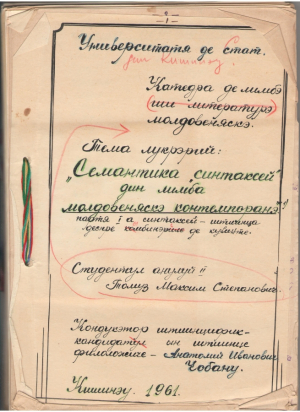 - 1 -
Университатя де Стат.
дин Кишинэу
Катедра де лимбэ
ши литературэ
молдовеняскэ.
Тема лукрэрий:
„Семантика синтаксей
дин лимба
молдовеняскэ контемпоранэ"
партя I а, синтаксей - штиинца
деспре комбинэриле де кувинте.
Студентул анулуй II
Толуз Максим Степанович.
Кондукэтор штиинцифик-
кандидатул ын штиинце
филоложиче - Анатолий Иванович
Чобану.
Кишинэу. 1961.